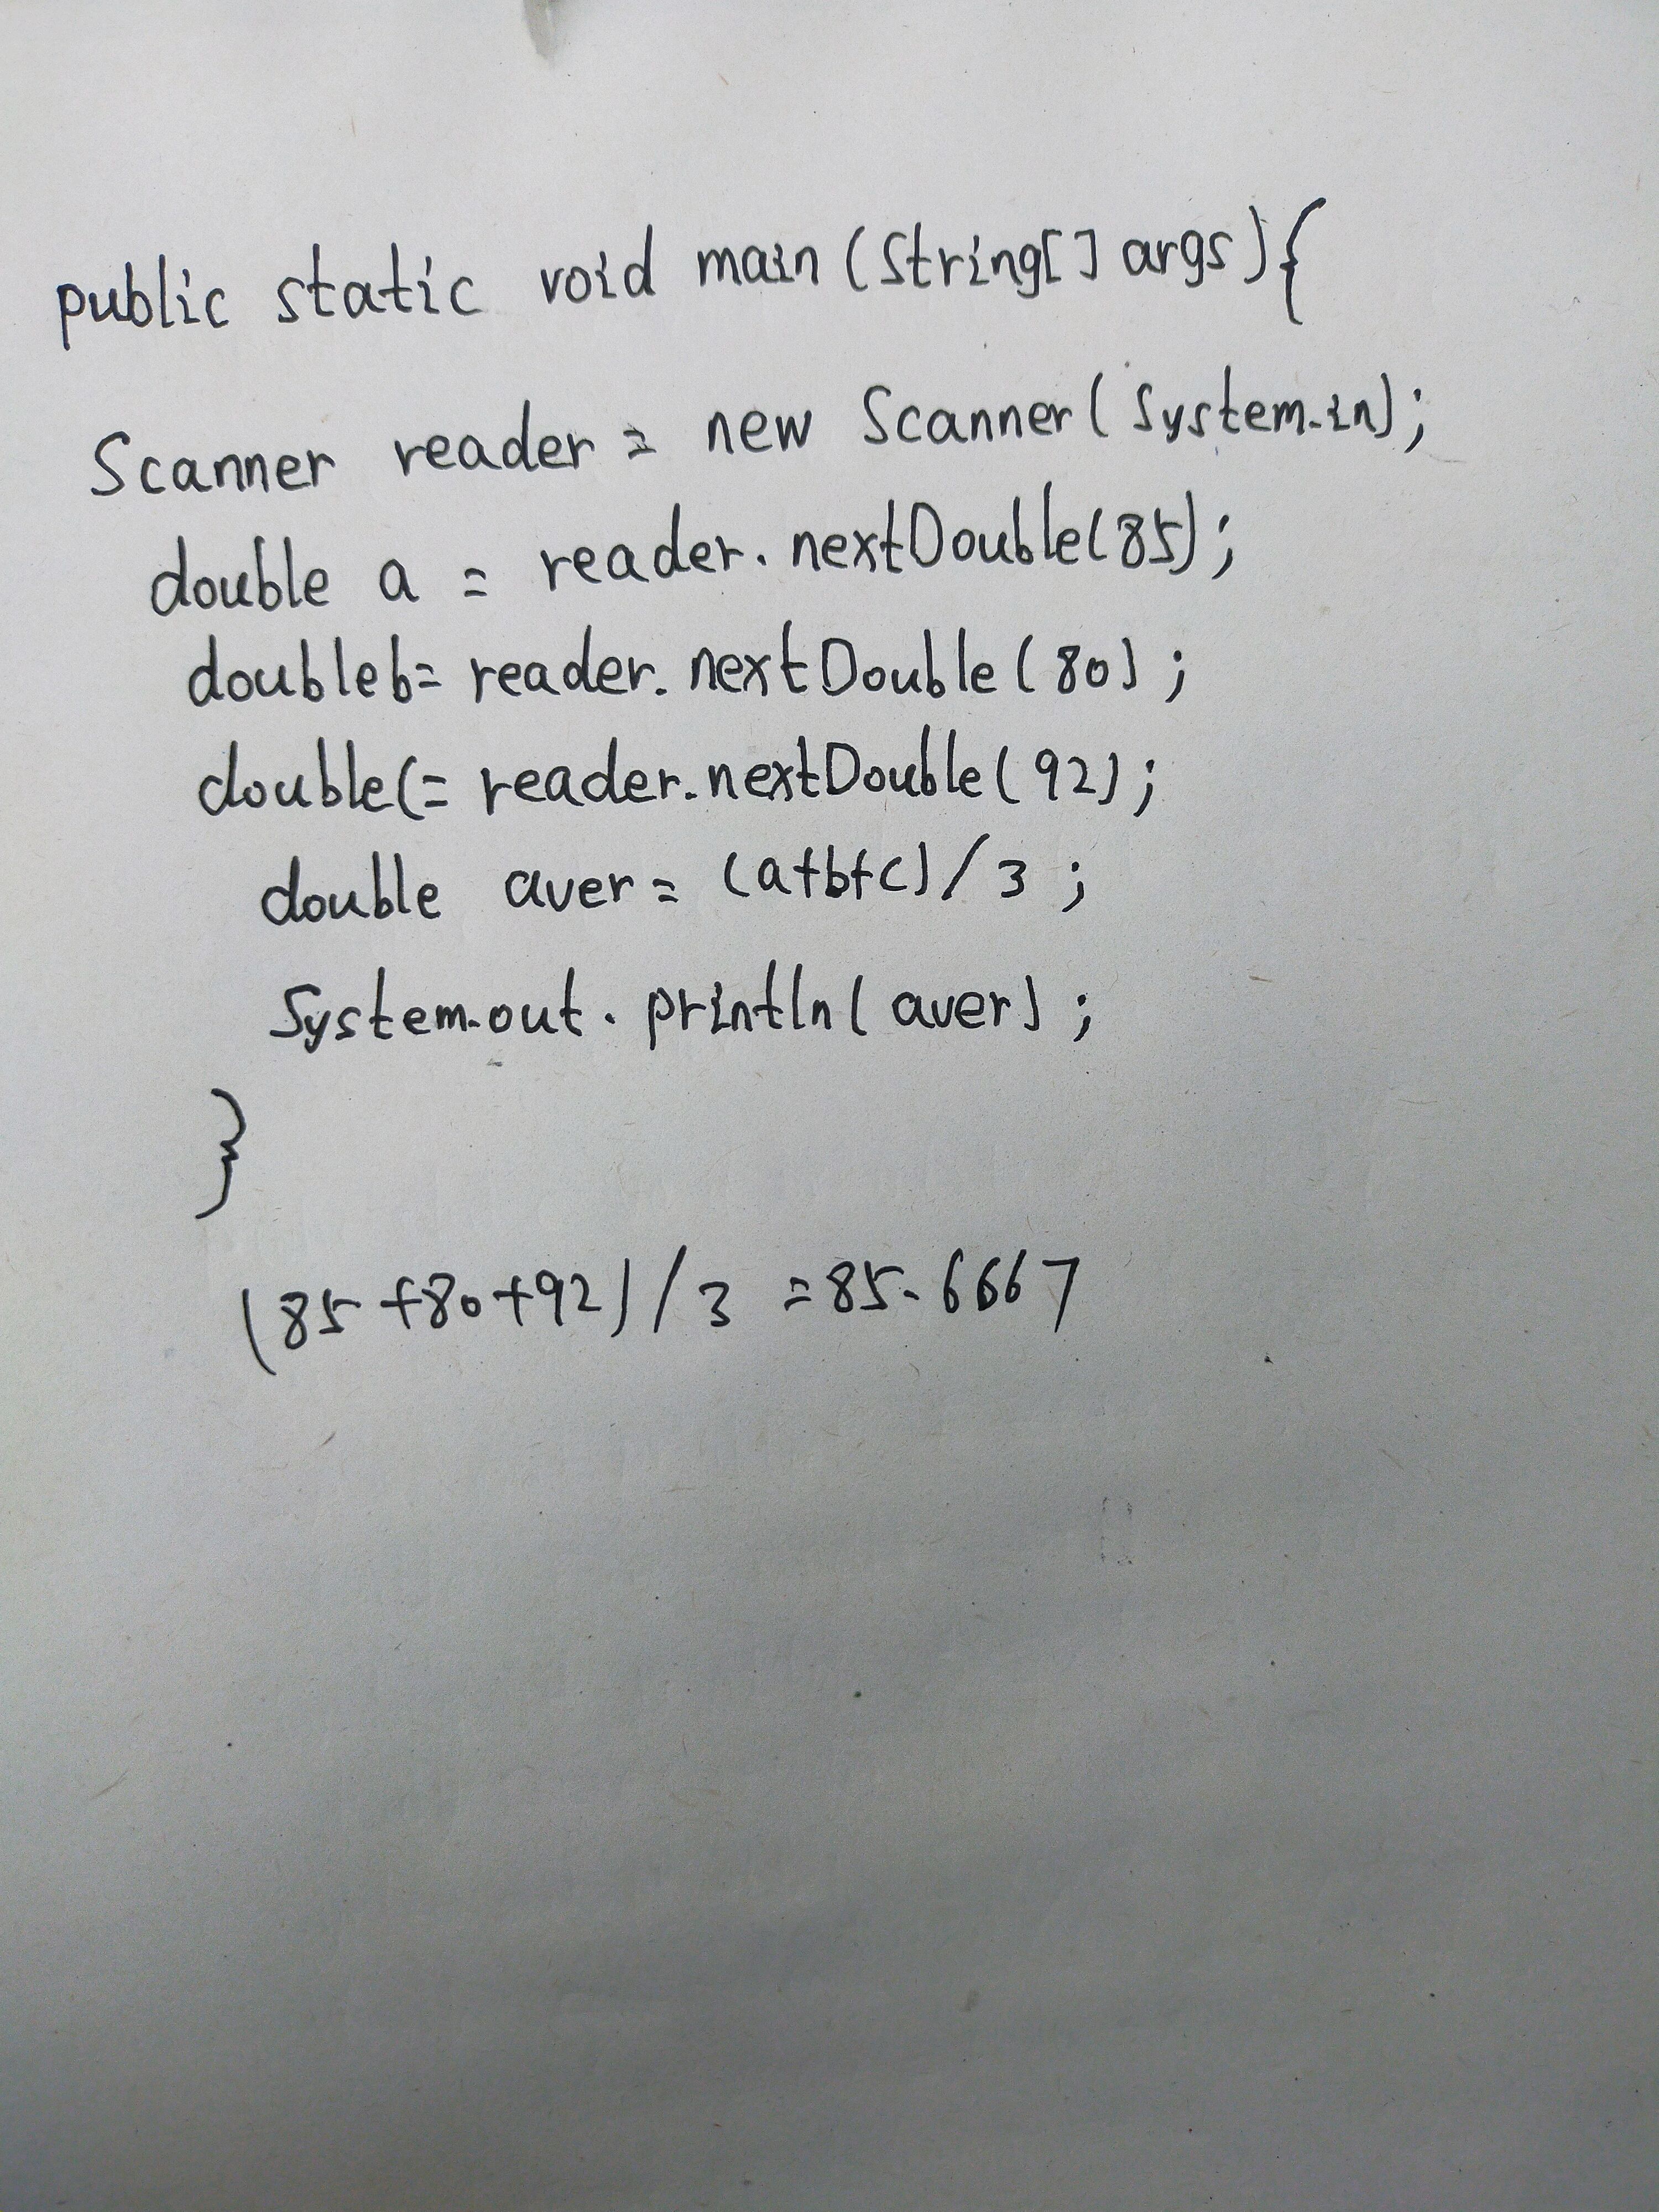 public static void main (String[] args){
Scanner reader = new Scanner(System.in);
double a = reader.nextDouble(85);
double b= reader.nextDouble(80);
double c= reader.nextDouble(92);
double aver= (a+b+c)/3;
System.out.println(aver);
}
(85+80+92)/3=85.6667